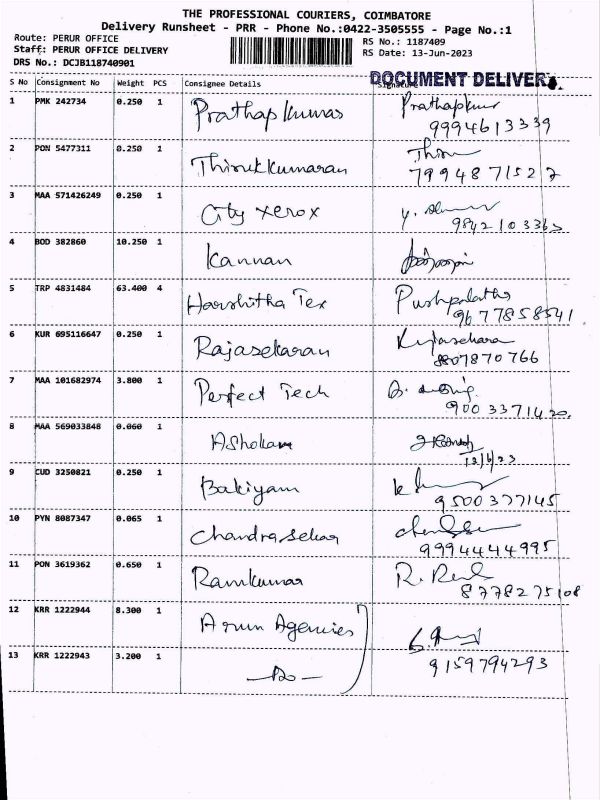 THE PROFESSIONAL COURIERS, COIMBATORE
Delivery Runsheet - PRR - Phone No.:0422-3505555 - Page No.:1
Route: PERUR OFFICE
RS No.: 1187409
Staff: PERUR OFFICE DELIVERY
RS Date: 13-Jun-2023
DRS No.: DCJB118740901
DOCUMENT DELIVERY
S No Consignment No Weight PCS Consignee Details Signature
1 PMK 242734 0.250 1 Prathap kumar Prathapkumr
9994613339
2 PON 5477311 0.250 1 Thirukkumaran Thiru
7994871527
3 MAA 571426249 0.250 1 City xerox
9842103363
4 BOD 382860 10.250 1 Kannan
5 TRP 4831484 63.400 4 Harshitha Tex Pushpalatha
9677858541
6 KUR 695116647 0.250 1 Rajasekaran
8807870766
7 MAA 101682974 3.800 1 Perfect Tech
9003371420
8 MAA 569033848 0.060 1 Ashokan
13/6/23
9 CUD 3250821 0.250 1 Bakiyam
9500377145
10 PYN 8087347 0.065 1 Chandrasekar
9994444995
11 PON 3619362 0.650 1 Ramkumar
8778275108
12 KRR 1222944 8.300 1 Arun Agencies
13 KRR 1222943 3.200 1 -Do-
9159794293